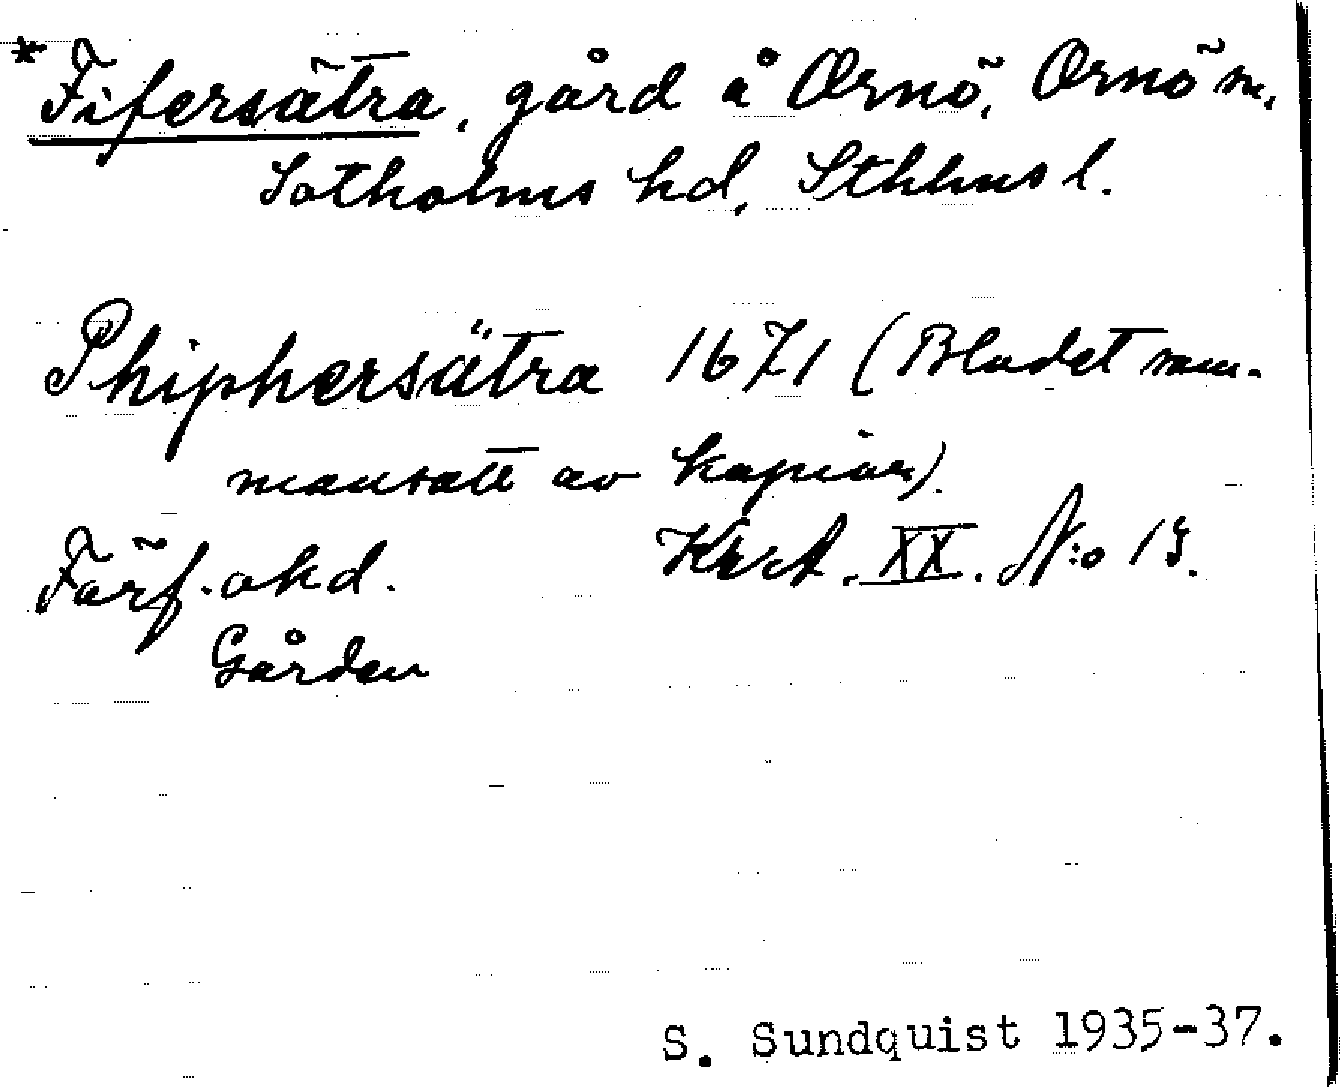 *Fifersätra, gård å Ornö, Ornö sn.
Sotholms hd, Sthlms l.
Phiphersätra 1671 (Bladet num-
mansatt av kopian).
Förf. okd. Krt A. XX. N:o 19.
Gården
S. Sundquist 1935-37.